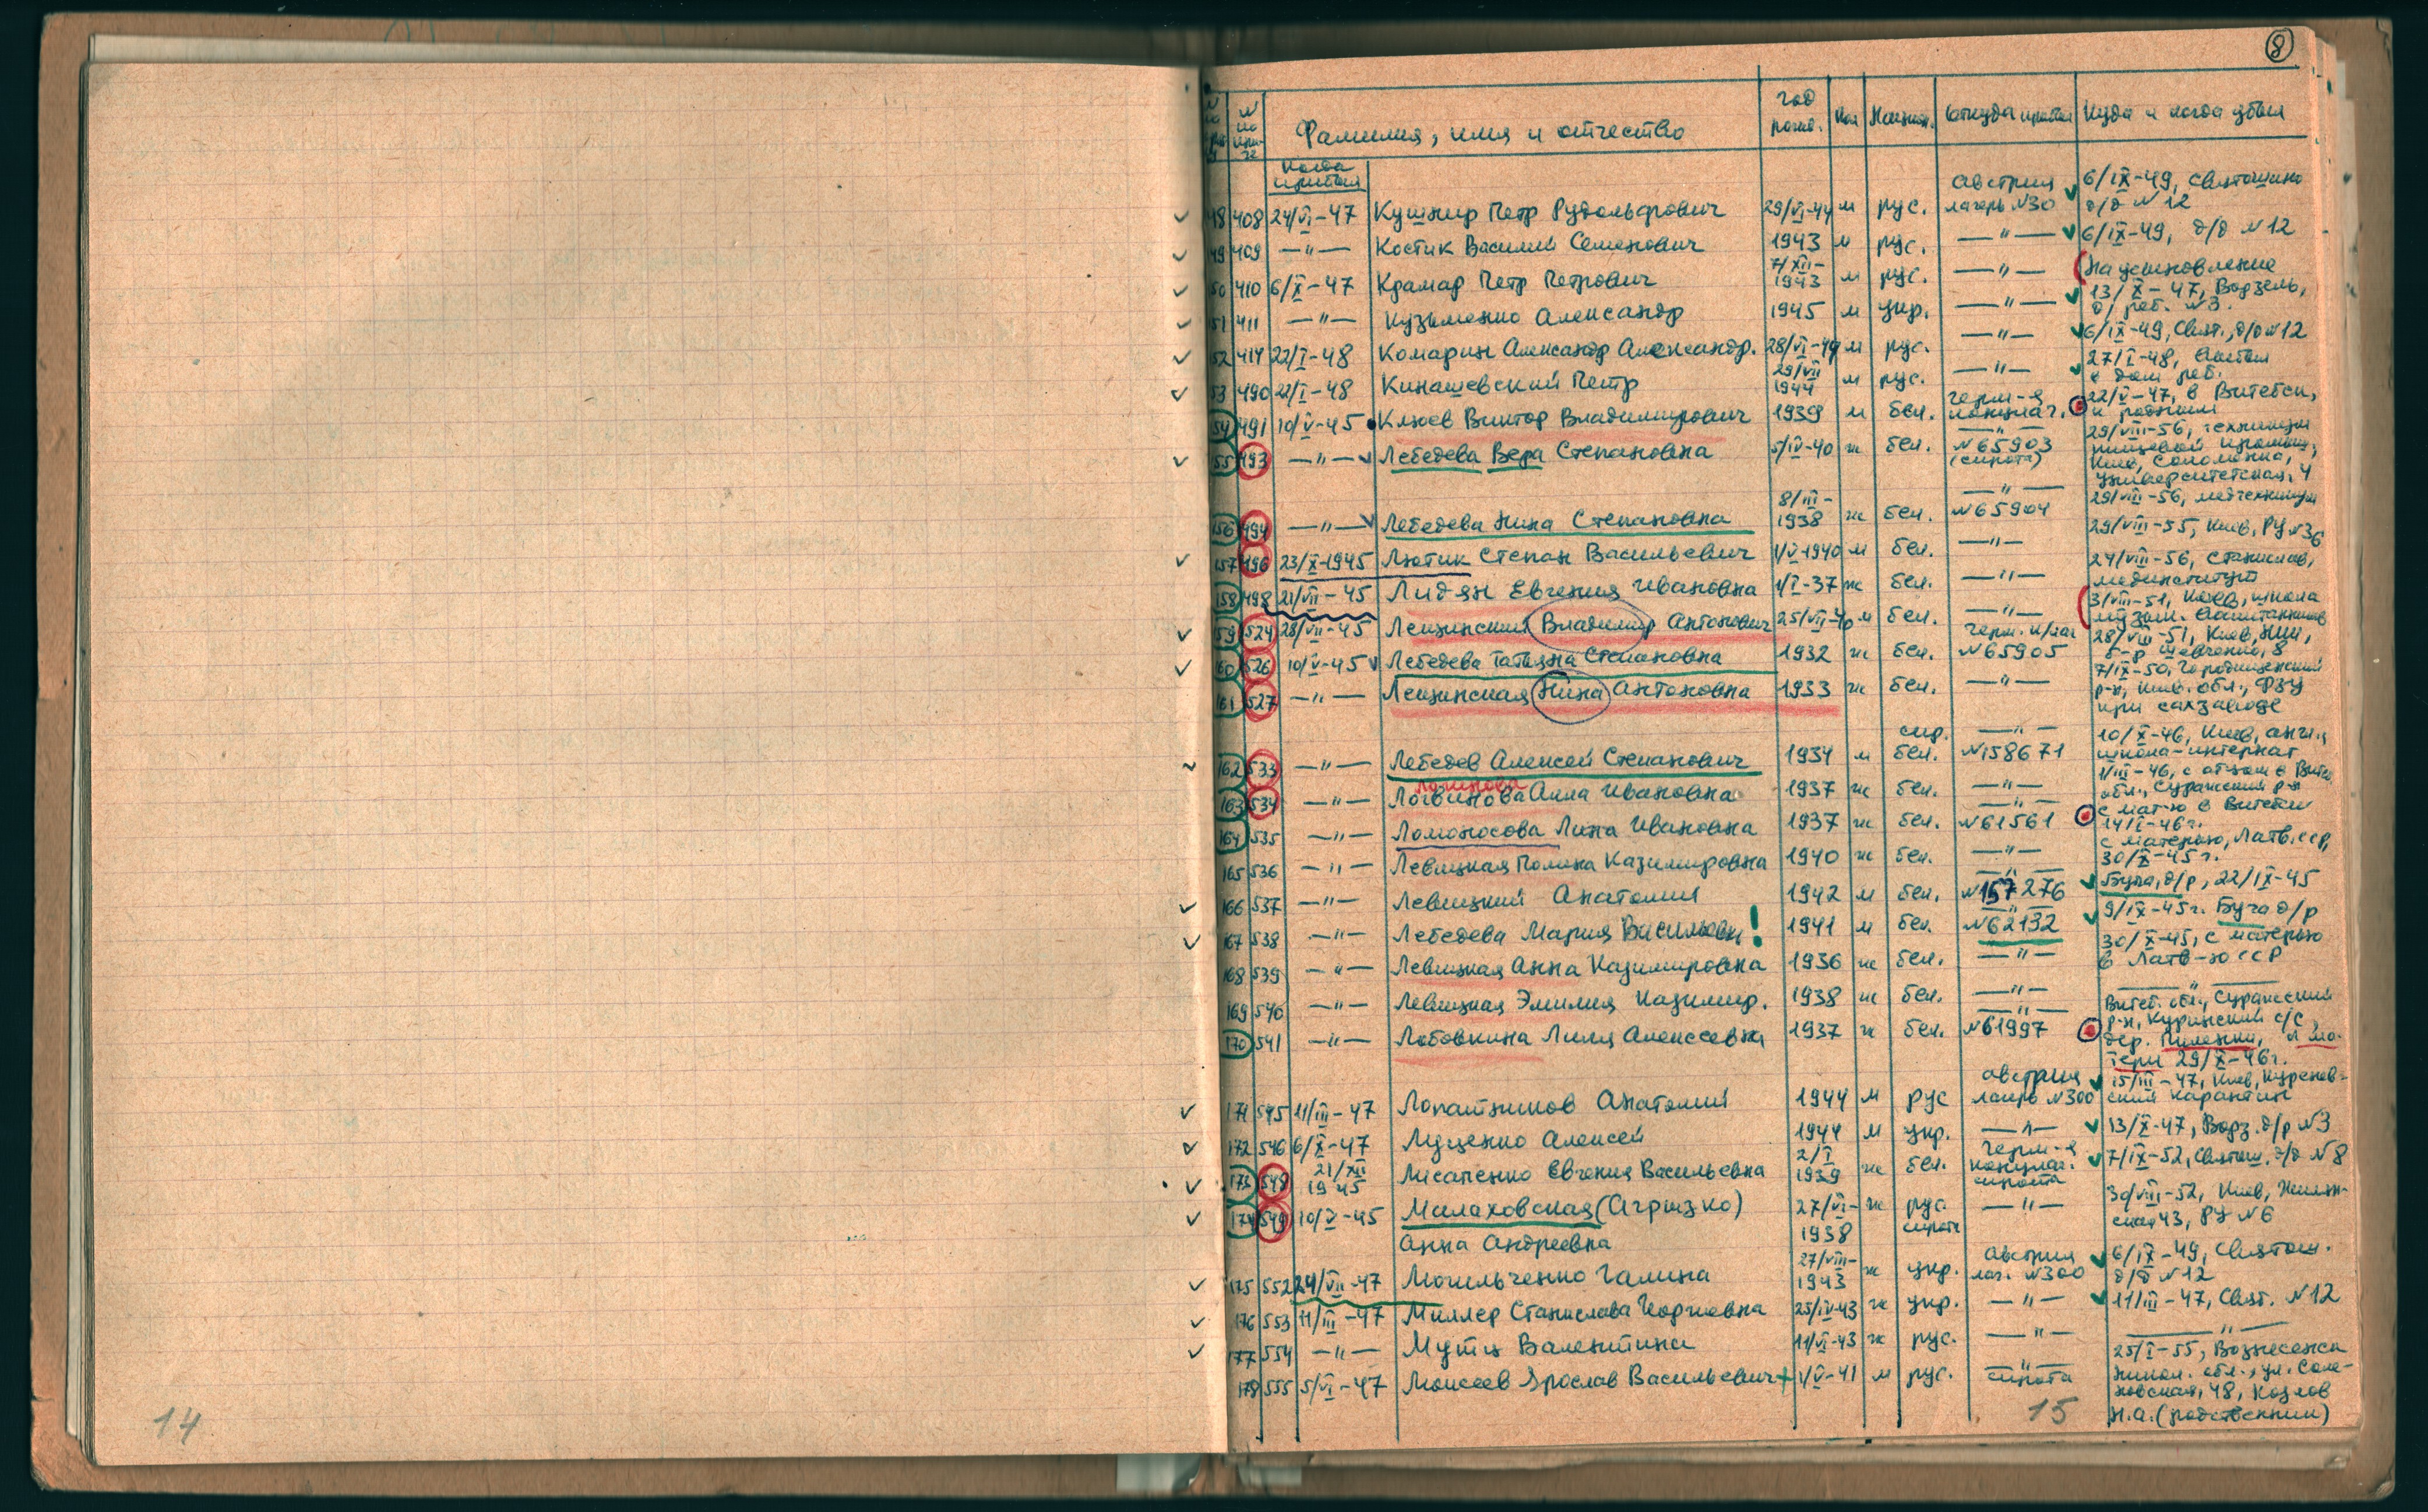 8
№ по № по кни-ге Фамилия, имя и отчество Год рожд. Пол Национ. Откуда прибыл Куда и когда убыл
Когда прибыл
48 408 24/VI-47 Кушнир Петр Рудольфович 29/VI-44 м рус. Австрия лагерь №30 6/IX-49, Святошино д/д №12
49 409 —"— Костик Василий Семенович 1943 м рус. —"— 6/IX-49, д/д №12
50 410 6/X-47 Крамар Петр Петрович 7/XII-1943 м рус. —"— На усыновление
51 411 —"— Кузьменко Александр 1945 м укр. —"— 13/X-47, Ворзель, д/реб. №3.
52 414 22/I-48 Комарин Александр Александр. 28/VI-44 м рус. —"— 6/IX-49, Свят., д/д №12
53 490 22/I-48 Кинашевский Петр 29/VII 1944 м рус. —"— 27/I-48, в дом реб.
54 491 10/V-45 Клюев Виктор Владимирович 1939 м бел. Герм-я концлаг. 22/V-47, в Витебск, к родным
55 493 —"— Лебедева Вера Степановна 5/IV-40 ж бел. —"— №65903 (сирота) 29/VIII-56, техникум пищевой промыш., Киев, Соломенка, Университетская, 4
156 494 —"— Лебедева Нина Степановна 8/III-1938 ж бел. —"— №65904 29/VIII-56, медтехникум
157 496 23/X-1945 Лютик Степан Васильевич 1/V-1940 м бел. —"— 29/VIII-55, Киев, РУ №36
158 498 21/VII-45 Лидян Евгения Ивановна 1/I-37 ж бел. —"— 24/VIII-56, Станислав, мединститут
159 524 28/VII-45 Лещинский Владимир Антонович 25/VII-40 м бел. —"— 3/VIII-51, Киев, школа музык. воспитанников
160 526 10/V-45 Лебедева Татьяна Степановна 1932 ж бел. Герм. к/лаг №65905 28/VIII-51, Киев, б-р Шевченко, 8
161 527 —"— Лещинская Нина Антоновна 1933 ж бел. —"— 7/IX-50, Городищенский р-н, Киев. обл., ФЗУ при сахзаводе
162 533 —"— Лебедев Алексей Степанович 1934 м сир. бел. —"— №158671 10/X-46, Киев, англ. школа-интернат
Логинова
163 534 —"— Логвинова Алла Ивановна 1937 ж бел. —"— 1/III-46, с отцом в Витеб. обл., Суражский р-н
164 535 —"— Ломоносова Лина Ивановна 1937 ж бел. —"— №61561 с мат-ю в Витебск 14/I-46г.
165 536 —"— Левицкая Полина Казимировна 1940 ж бел. —"— с матерью, Латв. ССР, 30/X-45г.
166 537 —"— Левицкий Анатолий 1942 м бел. —"— №157276 Буча, д/р, 22/IX-45
167 538 —"— Лебедева Мария Васильевн! 1941 м бел. —"— №62132 9/IX-45г. Буча д/р
168 539 —"— Левицкая Анна Казимировна 1936 ж бел. —"— 30/X-45, с матерью в Латв-ю ССР
169 540 —"— Левицкая Эмилия Казимир. 1938 ж бел. —"— —"—
170 541 —"— Лобовкина Лилия Алексеевна 1937 ж бел. —"— №61997 Витеб. обл., Суражский р-н, Куринский с/с, дер. Пиленки, к матери 29/X-46г.
171 545 11/III-47 Лопатников Анатолий 1944 м рус Австрия лагерь №300 15/III-47, Киев, Куреневский карантин
172 546 6/X-47 Луценко Алексей 1944 м укр. —"— 13/X-47, Ворз. д/р №3
173 548 21/XII 1945 Лисапенко Евгения Васильевна 2/I 1939 ж бел. Герм-я концлаг. сирота 7/IX-52, Святош. д/д №8
174 549 10/V-45 Малаховская (Агрызко) 27/VI-1938 ж рус. сирота —"— 30/VIII-52, Киев, 43, РУ №6
Анна Андреевна
175 552 24/VII-47 Могильченко Галина 27/VIII-1943 ж укр. Австрия лаг. №300 6/IX-49, Святош. д/д №12
176 553 11/III-47 Миллер Станислава Георгиевна 25/IV-43 ж укр. —"— 11/III-47, Свят. №12
177 554 —"— Мутц Валентина 11/VI-43 ж рус. —"— —"—
178 555 5/VI-47 Моисеев Ярослав Васильевич + 1/V-41 м рус. —"— сирота 25/I-55, Вознесенск Никол. обл., ул. 48, Козлов Н.А. (родственник)
14
15